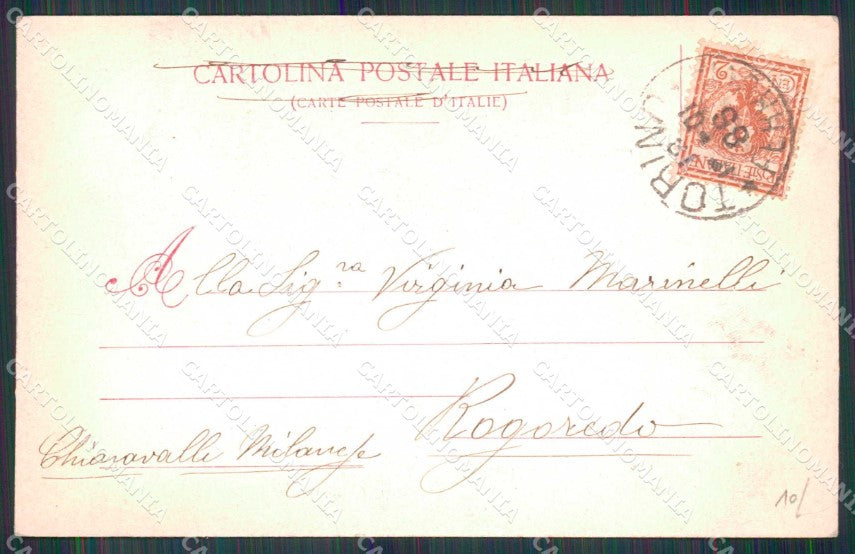 CARTOLINA POSTALE ITALIANA
(CARTE POSTALE D'ITALIE)
TORINO
Alla Sig.ra Virginia Marinelli
Rogoredo
Chiaravalle Milanese
10/
CARTOLINOMANIA